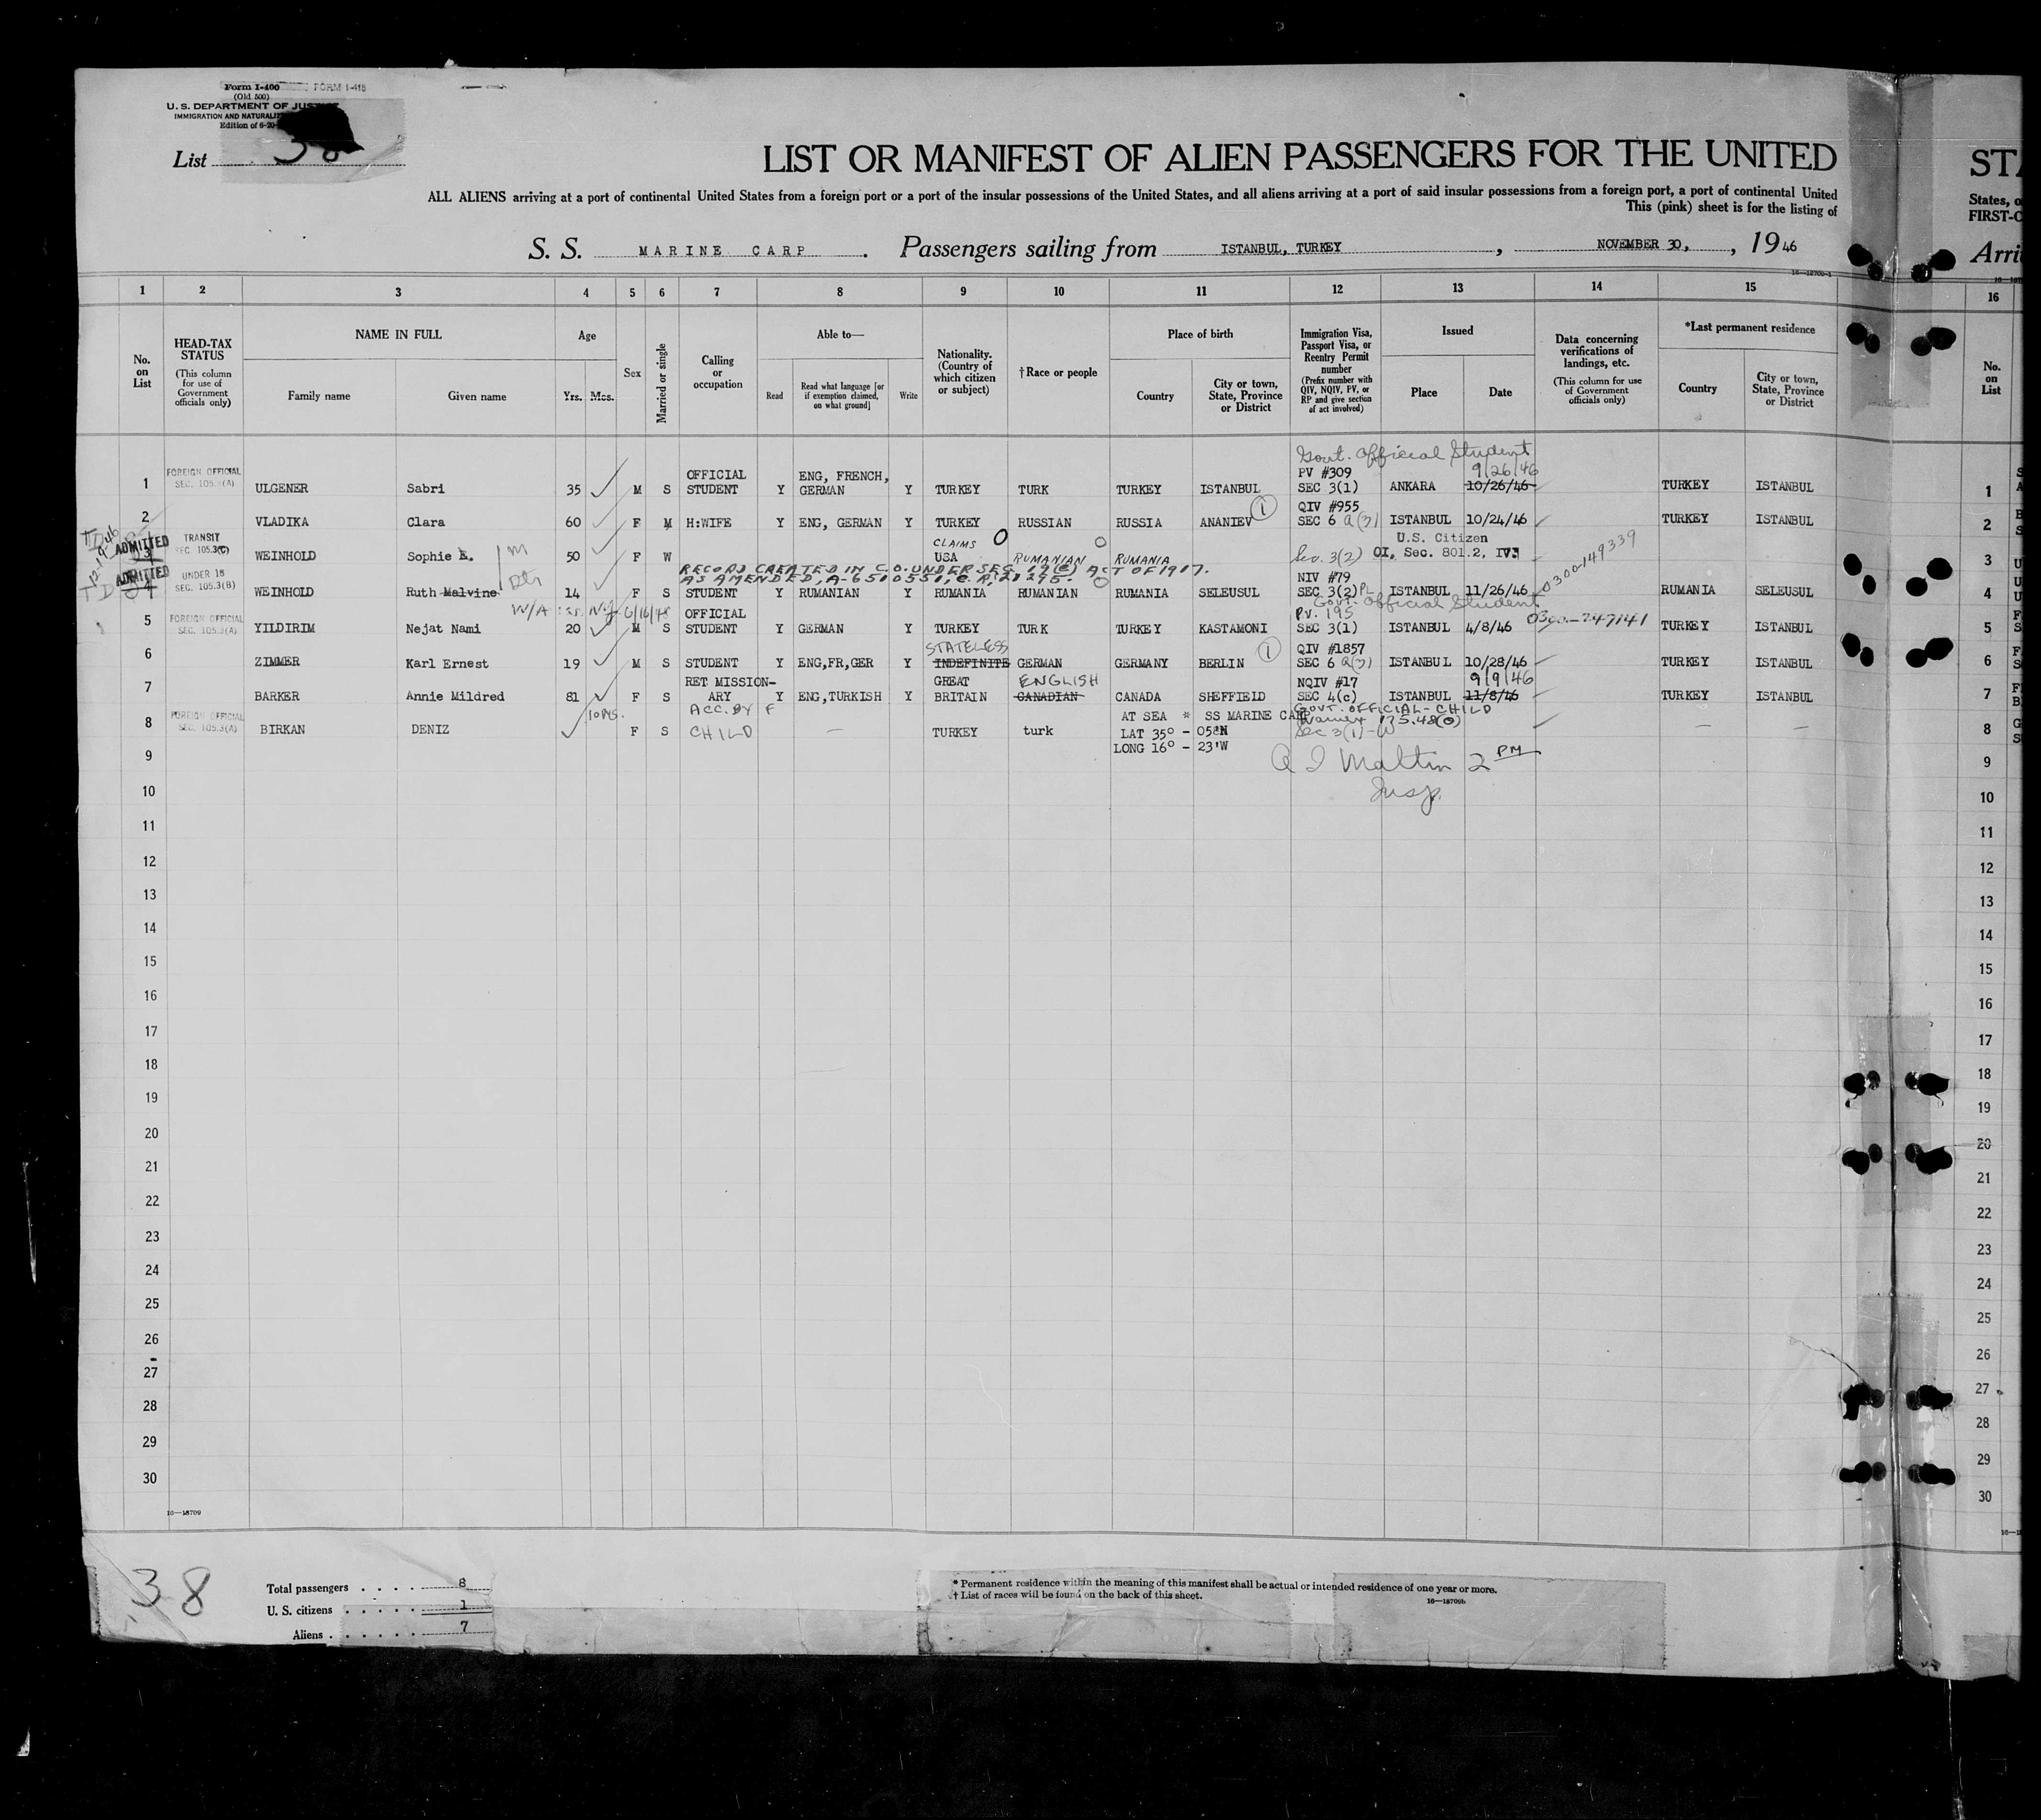 Form I-400 FORM I-418
(Old 500)
U. S. DEPARTMENT OF
IMMIGRATION AND
Edition of 6-20-
List 38
LIST OR MANIFEST OF ALIEN PASSENGERS FOR THE UNITED
ALL ALIENS arriving at a port of continental United States from a foreign port or a port of the insular possessions of the United States, and all aliens arriving at a port of said insular possessions from a foreign port, a port of continental United
This (pink) sheet is for the listing of
S. S. MARINE CARP. Passengers sailing from ISTANBUL, TURKEY, NOVEMBER 30, , 1946
ST
States, o
FIRST-C
Arri
1 2 3 4 5 6 7 8 9 10 11 12 13 14 15 16
No. on List
HEAD-TAX STATUS
(This column for use of Government officials only)
NAME IN FULL
Family name Given name
Age
Yrs. Mos.
Sex
Married or single
Calling or occupation
Able to—
Read
Read what language [or if exemption claimed, on what ground]
Write
Nationality. (Country of which citizen or subject)
†Race or people
Place of birth
Country
City or town, State, Province or District
Immigration Visa, Passport Visa, or Reentry Permit number
(Prefix number with QIV, NQIV, PV, or RP and give section of act involved)
Issued
Place Date
Data concerning verifications of landings, etc.
(This column for use of Government officials only)
*Last permanent residence
Country
City or town, State, Province or District
No. on List
Govt. Official Student
FOREIGN OFFICIAL OFFICIAL ENG, FRENCH, PV #309 9/26/46
1 SEC. 105.3(A) ULGENER Sabri 35 M S STUDENT Y GERMAN Y TURKEY TURK TURKEY ISTANBUL SEC 3(1) ANKARA 10/26/46 TURKEY ISTANBUL 1
QIV #955
2 VLADIKA Clara 60 F M H:WIFE Y ENG, GERMAN Y TURKEY RUSSIAN RUSSIA ANANIEV SEC 6 a(3) ISTANBUL 10/24/46 TURKEY ISTANBUL 2
TRANSIT CLAIMS U.S. Citizen
ADMITTED 3 SEC. 105.3(C) WEINHOLD Sophie E. M 50 F W USA RUMANIAN RUMANIA Sec. 3(2) OI, Sec. 801.2, IV. 0300-149339 3
RECORD CREATED IN C.O. UNDER SEC. 19(C) ACT OF 1917.
AS AMENDED, A-6510551, C.R. 21295.
ADMITTED UNDER 16 NIV #79
TD 4 SEC. 105.3(B) WEINHOLD Ruth Malvine 14 F S STUDENT Y RUMANIAN Y RUMANIA RUMANIAN RUMANIA SELEUSUL SEC 3(2) PL ISTANBUL 11/26/46 RUMANIA SELEUSUL 4
W/A 6/16/48 Govt. Official Student
FOREIGN OFFICIAL OFFICIAL P.V. 195 0300-247141
5 SEC. 105.3(A) YILDIRIM Nejat Nami 20 M S STUDENT Y GERMAN Y TURKEY TURK TURKEY KASTAMONI SEC 3(1) ISTANBUL 4/8/46 TURKEY ISTANBUL 5
STATELESS QIV #1857
6 ZIMMER Karl Ernest 19 M S STUDENT Y ENG,FR,GER Y INDEFINITE GERMAN GERMANY BERLIN SEC 6 a(3) ISTANBUL 10/28/46 TURKEY ISTANBUL 6
RET MISSION- GREAT ENGLISH NQIV #17 9/9/46
7 BARKER Annie Mildred 81 F S ARY Y ENG,TURKISH Y BRITAIN CANADIAN CANADA SHEFFIELD SEC 4(c) ISTANBUL 11/8/46 TURKEY ISTANBUL 7
ACC. BY F GOVT. OFFICIAL - CHILD
FOREIGN OFFICIAL 10 DYS. AT SEA * SS MARINE CARP Waiver 175.48(O)
8 SEC. 105.3(A) BIRKAN DENIZ F S CHILD — TURKEY turk LAT 35° - 05'N Sec 3(1)-W — — 8
LONG 16° - 23'W
9 2 PM 9
Insp.
10 10
11 11
12 12
13 13
14 14
15 15
16 16
17 17
18 18
19 19
20 20
21 21
22 22
23 23
24 24
25 25
26 26
27 27
28 28
29 29
30 30
16—18709
38
Total passengers . . . . 8
U. S. citizens . . . . . 1
Aliens . . . . . . 7
* Permanent residence within the meaning of this manifest shall be actual or intended residence of one year or more.
† List of races will be found on the back of this sheet.
16—18709b